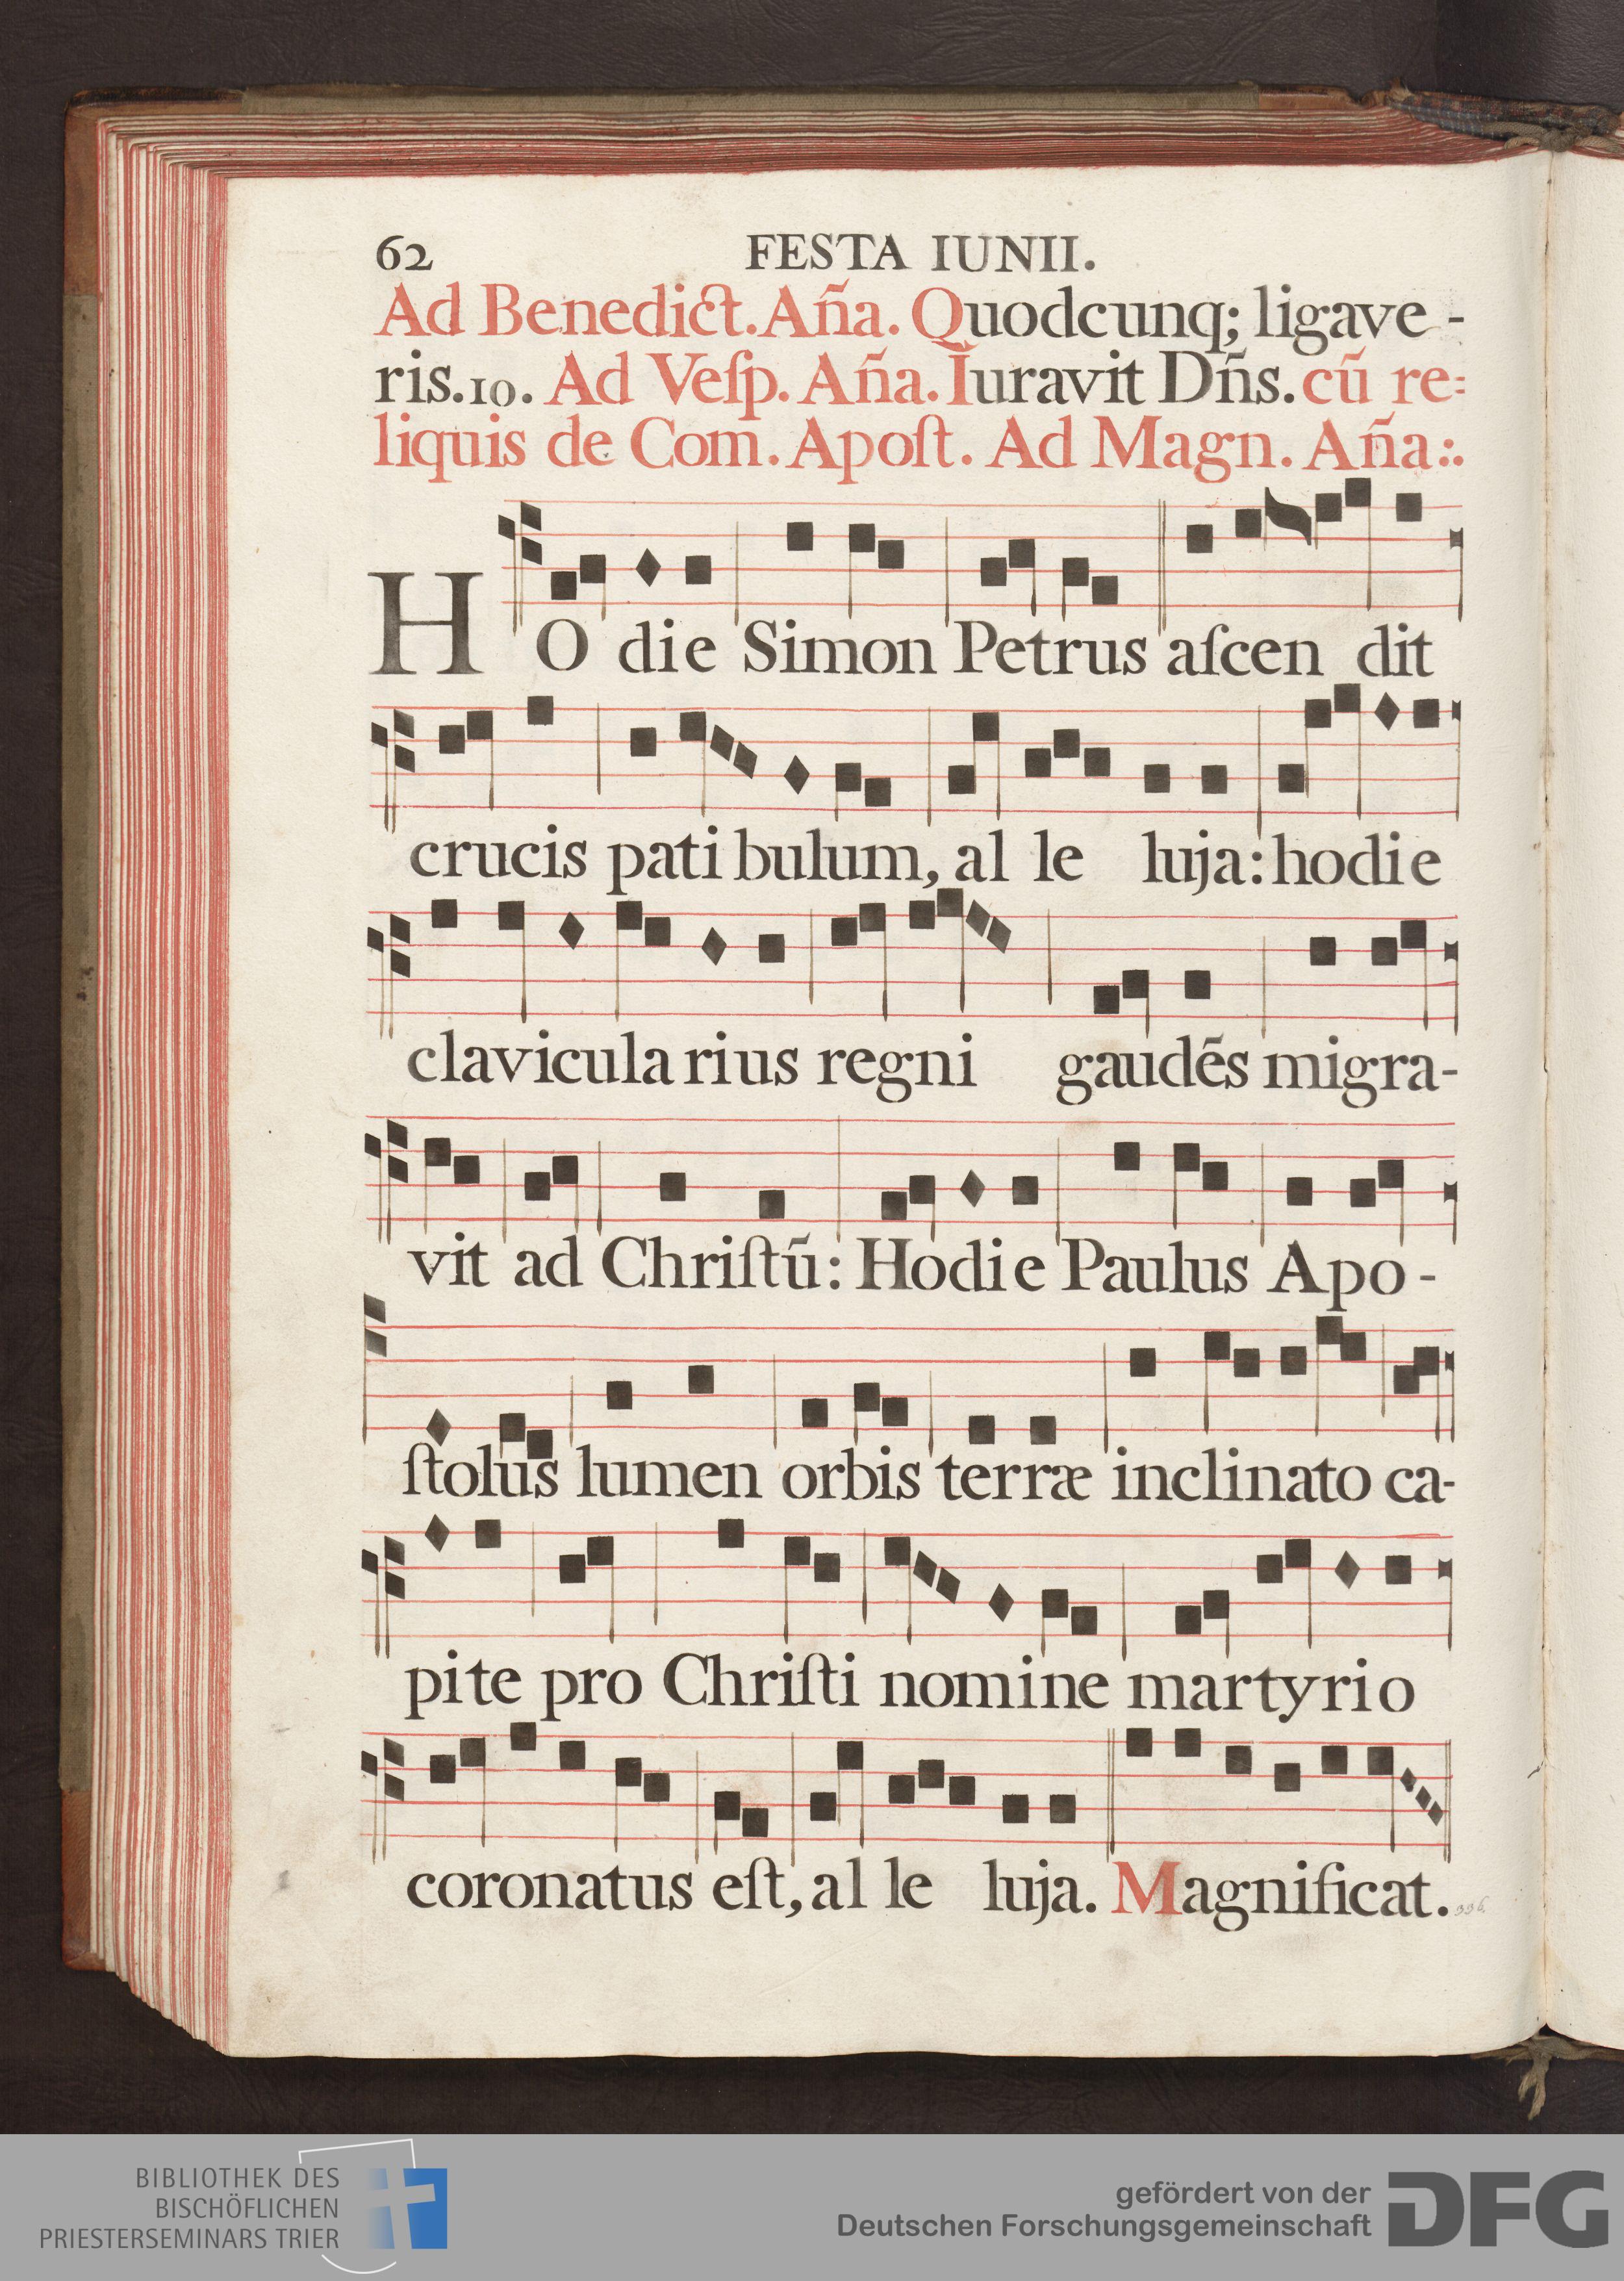 62 FESTA IUNII.
Ad Benedict. Aña. Quodcunq; ligave -
ris. 10. Ad Veſp. Aña. Iuravit Dñs. cū re=
liquis de Com. Apoſt. Ad Magn. Aña:.
HO die Simon Petrus aſcen dit
crucis pati bulum, al le luja: hodie
clavicula rius regni gaudēs migra-
vit ad Chriſtū: Hodie Paulus Apo -
ſtolus lumen orbis terræ inclinato ca-
pite pro Chriſti nomine martyrio
coronatus eſt, al le luja. Magnificat.
BIBLIOTHEK DES
BISCHÖFLICHEN
PRIESTERSEMINARS TRIER
gefördert von der
Deutschen Forschungsgemeinschaft
DFG